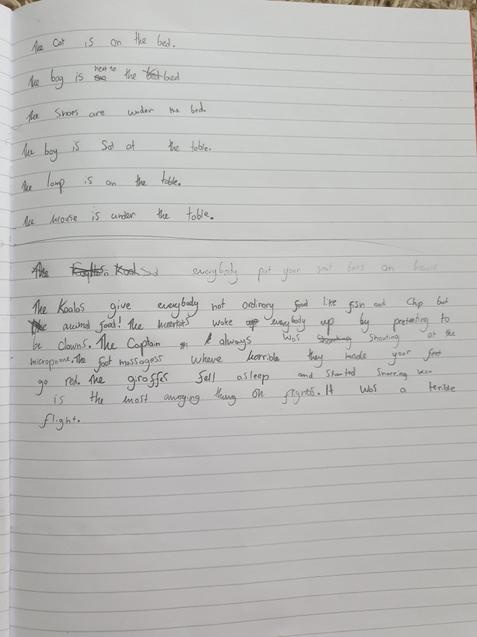 The Cat is on the bed.
The bag is next to the bed
The Shoes are under the bed.
The boy is Sat at the table.
The lamp is on the table.
The mouse is under the table.
The everybody put your on
The Koalas give everybody not ordinary food like fish and Chip but
animal food! The woke everybody up by pretenting to
be clowns. The Captain always was Shouting at the
microphone. The foot massagess where horrible they made your feet
go red. The giraffes fell asleep and Started Snorring
is the most anoying thing on flights. It was a terible
flight.